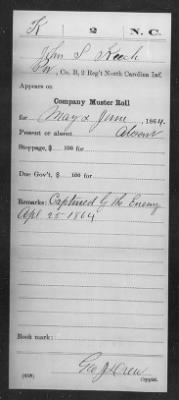 K 2 N.C.
Jno S. Keech
Pvt, Co. B, 2 Reg't North Carolina Inf.
Appears on
Company Muster Roll
for May & June, 1864.
Present or absent Absent
Stoppage, $ 100 for
Due Gov't, $ 100 for
Remarks: Captured by the Enemy
Apl 20 1864
Book mark:
Geo J. Drew
(658) Copyist.